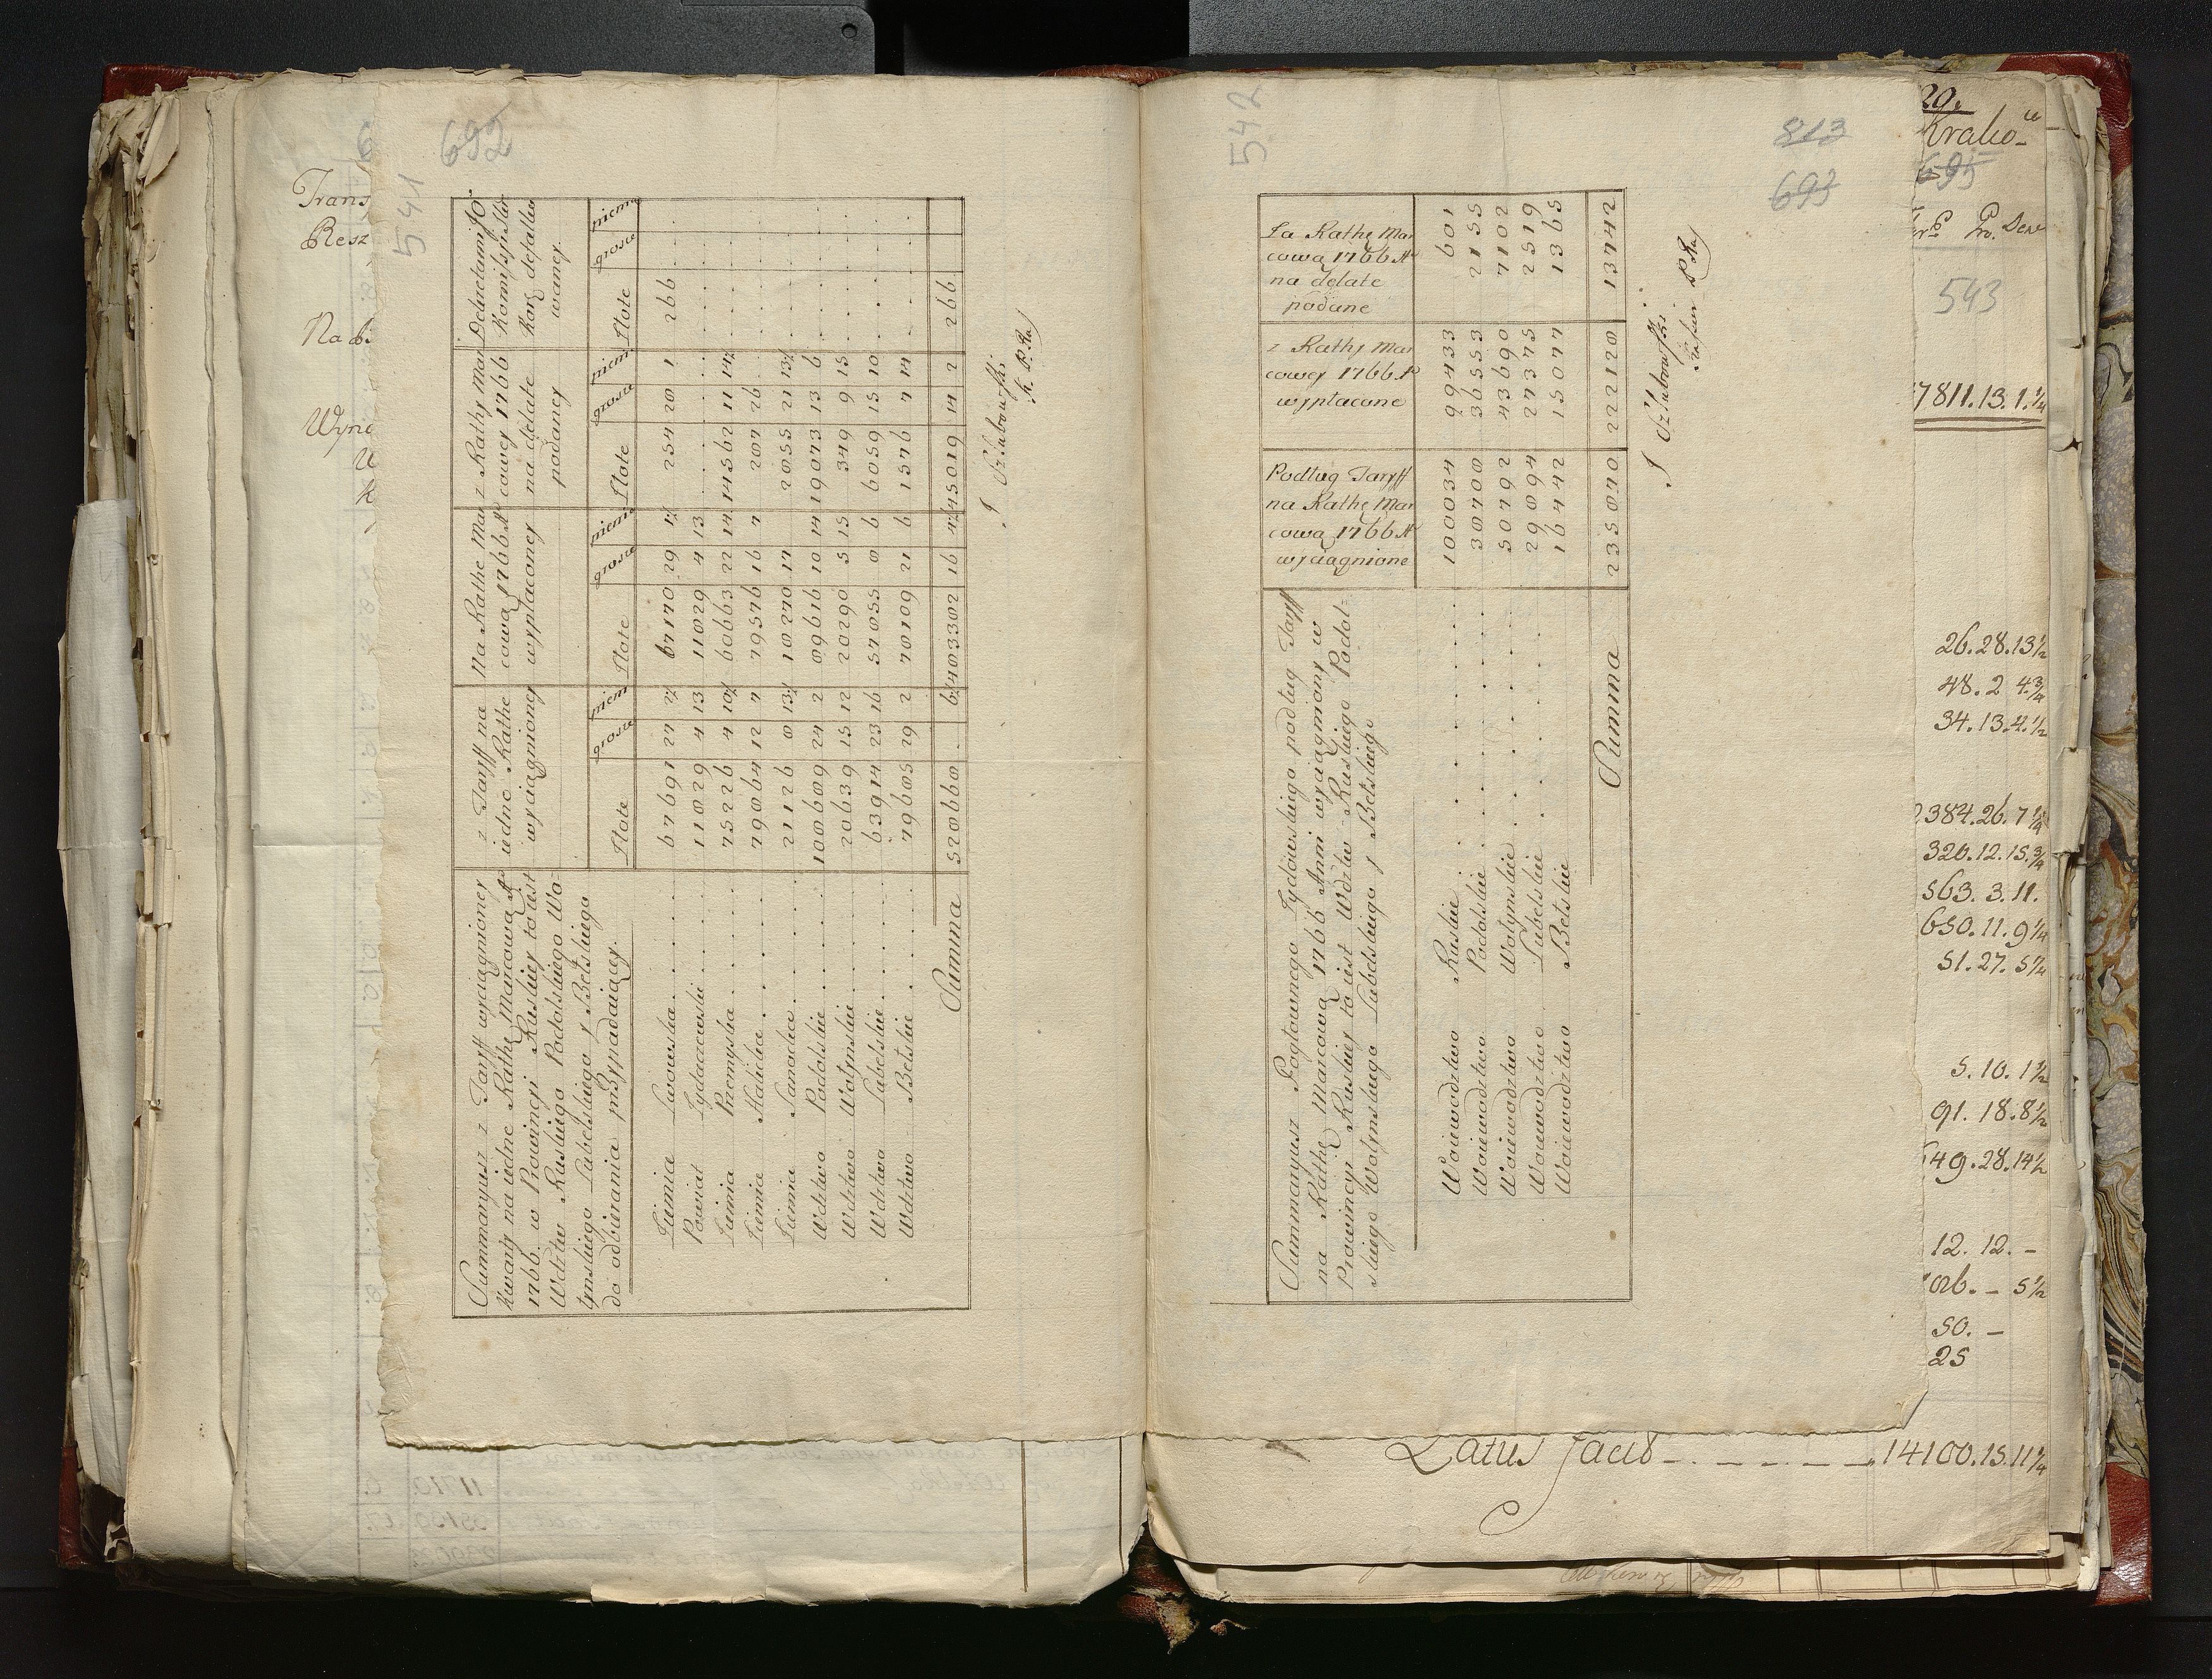 692
541
Summaryusz z Taryff wyciągnioney
Kwoty na iedne Rathę Marcową A°
1766. w Prowincyi Ruskiey to iest
Wdztw Ruskiego Podolskiego Wo-
łyńskiego Lubelskiego y Bełzkiego
do odbierania przypadaiącey.
z Taryff na
iedne Rathę
wyciągnioney
Na Rathę Mar
cową 1766 A°
wypłaconey
z Rathy Mar
cowey 1766
na delate
podaney
Kommissyi Skar
Kor. defalko
waney.
złote grosze pieni złote grosze pieni złote grosze pieni złote grosze pieni
Ziemia Lwowska 67691 27 2½ 67170 29 1½ 254 28 1 266
Powiat Zydaczewski 11829 4 13 11829 4 13
Ziemia Przemyska 75226 4 10½ 60663 22 14 14562 11 14½
Ziemia Halicka 79864 12 7 79576 16 7 287 26
Ziemia Sanocka 21126 8 13½ 18270 17 2855 21 13½
Wdztwo Podolskie 108689 24 2 89616 10 14 19073 13 6
Wdztwo Wołynskie 20639 15 12 20290 5 15 349 9 15
Wdztwo Lubelskie 63914 23 16 57855 8 6 6059 15 10
Wdztwo Bełzkie 79685 29 2 78109 21 6 1576 7 14
Summa 528668 6½ 483382 16 4½ 45019 14 2 266
542
813
693
Summaryusz Pogłownego Zydowskiego podług Taryff
na Rathę Marcową 1766 Anni wyciągniony w
Prowincyi Ruskiey to iest Wdztw Ruskiego Podol-
skiego Wołynskiego Lubelskiego y Bełzkiego
Podług Taryff
na Rathę Mar
cową 1766 A°
wyciągnione
z Rathy Mar
cowey 1766 A°
wypłacone
Za Rathę Mar
cową 1766 A°
na delate
podane
Woiewodztwo Ruskie 100034 99433 601
Woiewodztwo Podolskie 38708 36553 2155
Woiewodztwo Wołynskie 50792 43690 7102
Woiewodztwo Lubelskie 29894 27375 2519
Woiewodztwo Bełzkie 16442 15077 1365
Summa 235870 222128 13742
Trans
Resz
Na
695
543
7811.13.1.¼
26.28.13½
48.2 4¾
34.13.4.½
384.26.7¼
320.12.15.¾
563.3.11.
650.11.9¼
51.27.5¼
5.10.1½
91.18.8½
49.28.14½
12.12.-
50.-
25
Latus facit 14100.15.11¼